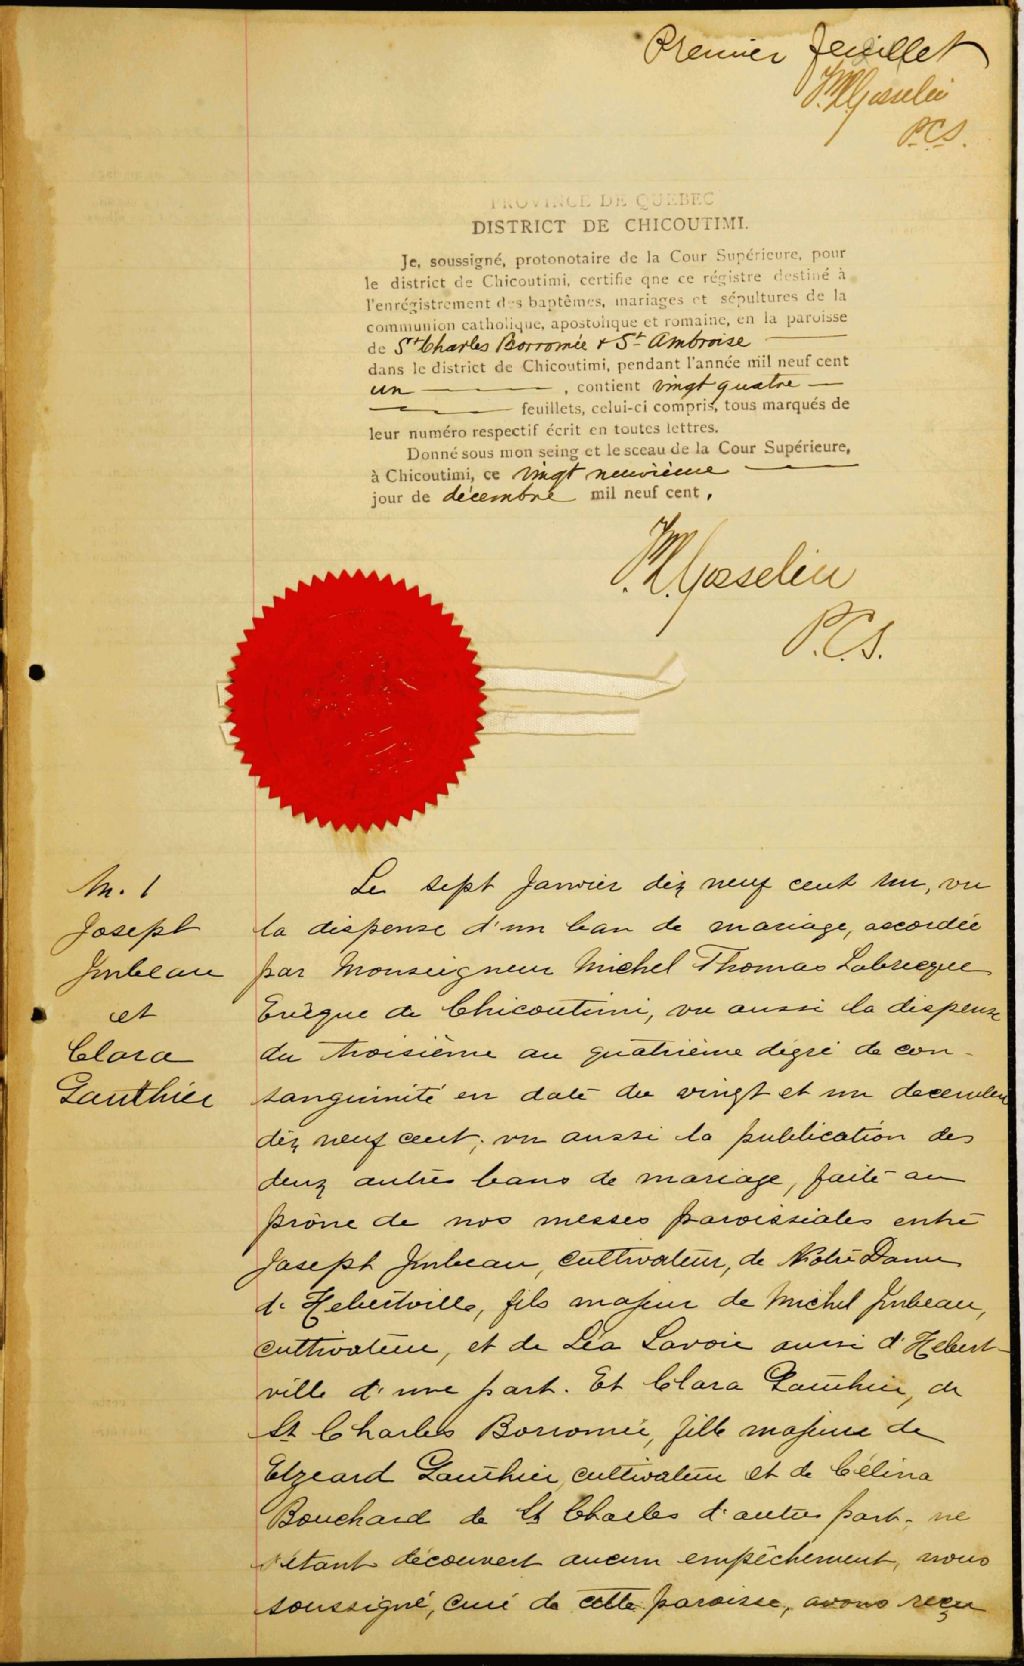 Premier feuillet
J.M.L. Gosselin
P.C.S.
PROVINCE DE QUÉBEC
DISTRICT DE CHICOUTIMI.
Je, soussigné, protonotaire de la Cour Supérieure, pour
le district de Chicoutimi, certifie qne ce régistre destiné à
l'enrégistrement des baptêmes, mariages et sépultures de la
communion catholique, apostolique et romaine, en la paroisse
de St Charles Borromée & St Ambroise
dans le district de Chicoutimi, pendant l'année mil neuf cent
un , contient vingt quatre
feuillets, celui-ci compris, tous marqués de
leur numéro respectif écrit en toutes lettres.
Donné sous mon seing et le sceau de la Cour Supérieure,
à Chicoutimi, ce vingt neuvième
jour de décembre mil neuf cent,
Gosselin
P.C.S.
M. 1
Joseph
Imbeau
et
Clara
Gauthier
Le sept Janvier dix neuf cent un, vu
la dispense d'un ban de mariage, accordée
par Monseigneur Michel Thomas Labrecque
Evêque de Chicoutimi, vu aussi la dispense
du troisième au quatrième dégré de con-
sanguinité en date du vingt et un decembre
dix neuf cent; vu aussi la publication des
deux autres bans de mariage, faite au
prône de nos messes paroissiales entre
Joseph Imbeau, cultivateur, de Notre Dame
d'Hebertville, fils majeur de Michel Imbeau,
cultivateur, et de Léa Lavoie aussi d'Hebert-
ville d'une part. Et Clara Gauthier, de
St Charles Borromée, fille majeure de
Elzeard Gauthier, cultivateur et de Célina
Bouchard de St Charles d'autre part, ne
s'étant découvert aucun empêchement, nous
soussigné, curé de cette paroisse, avons reçu